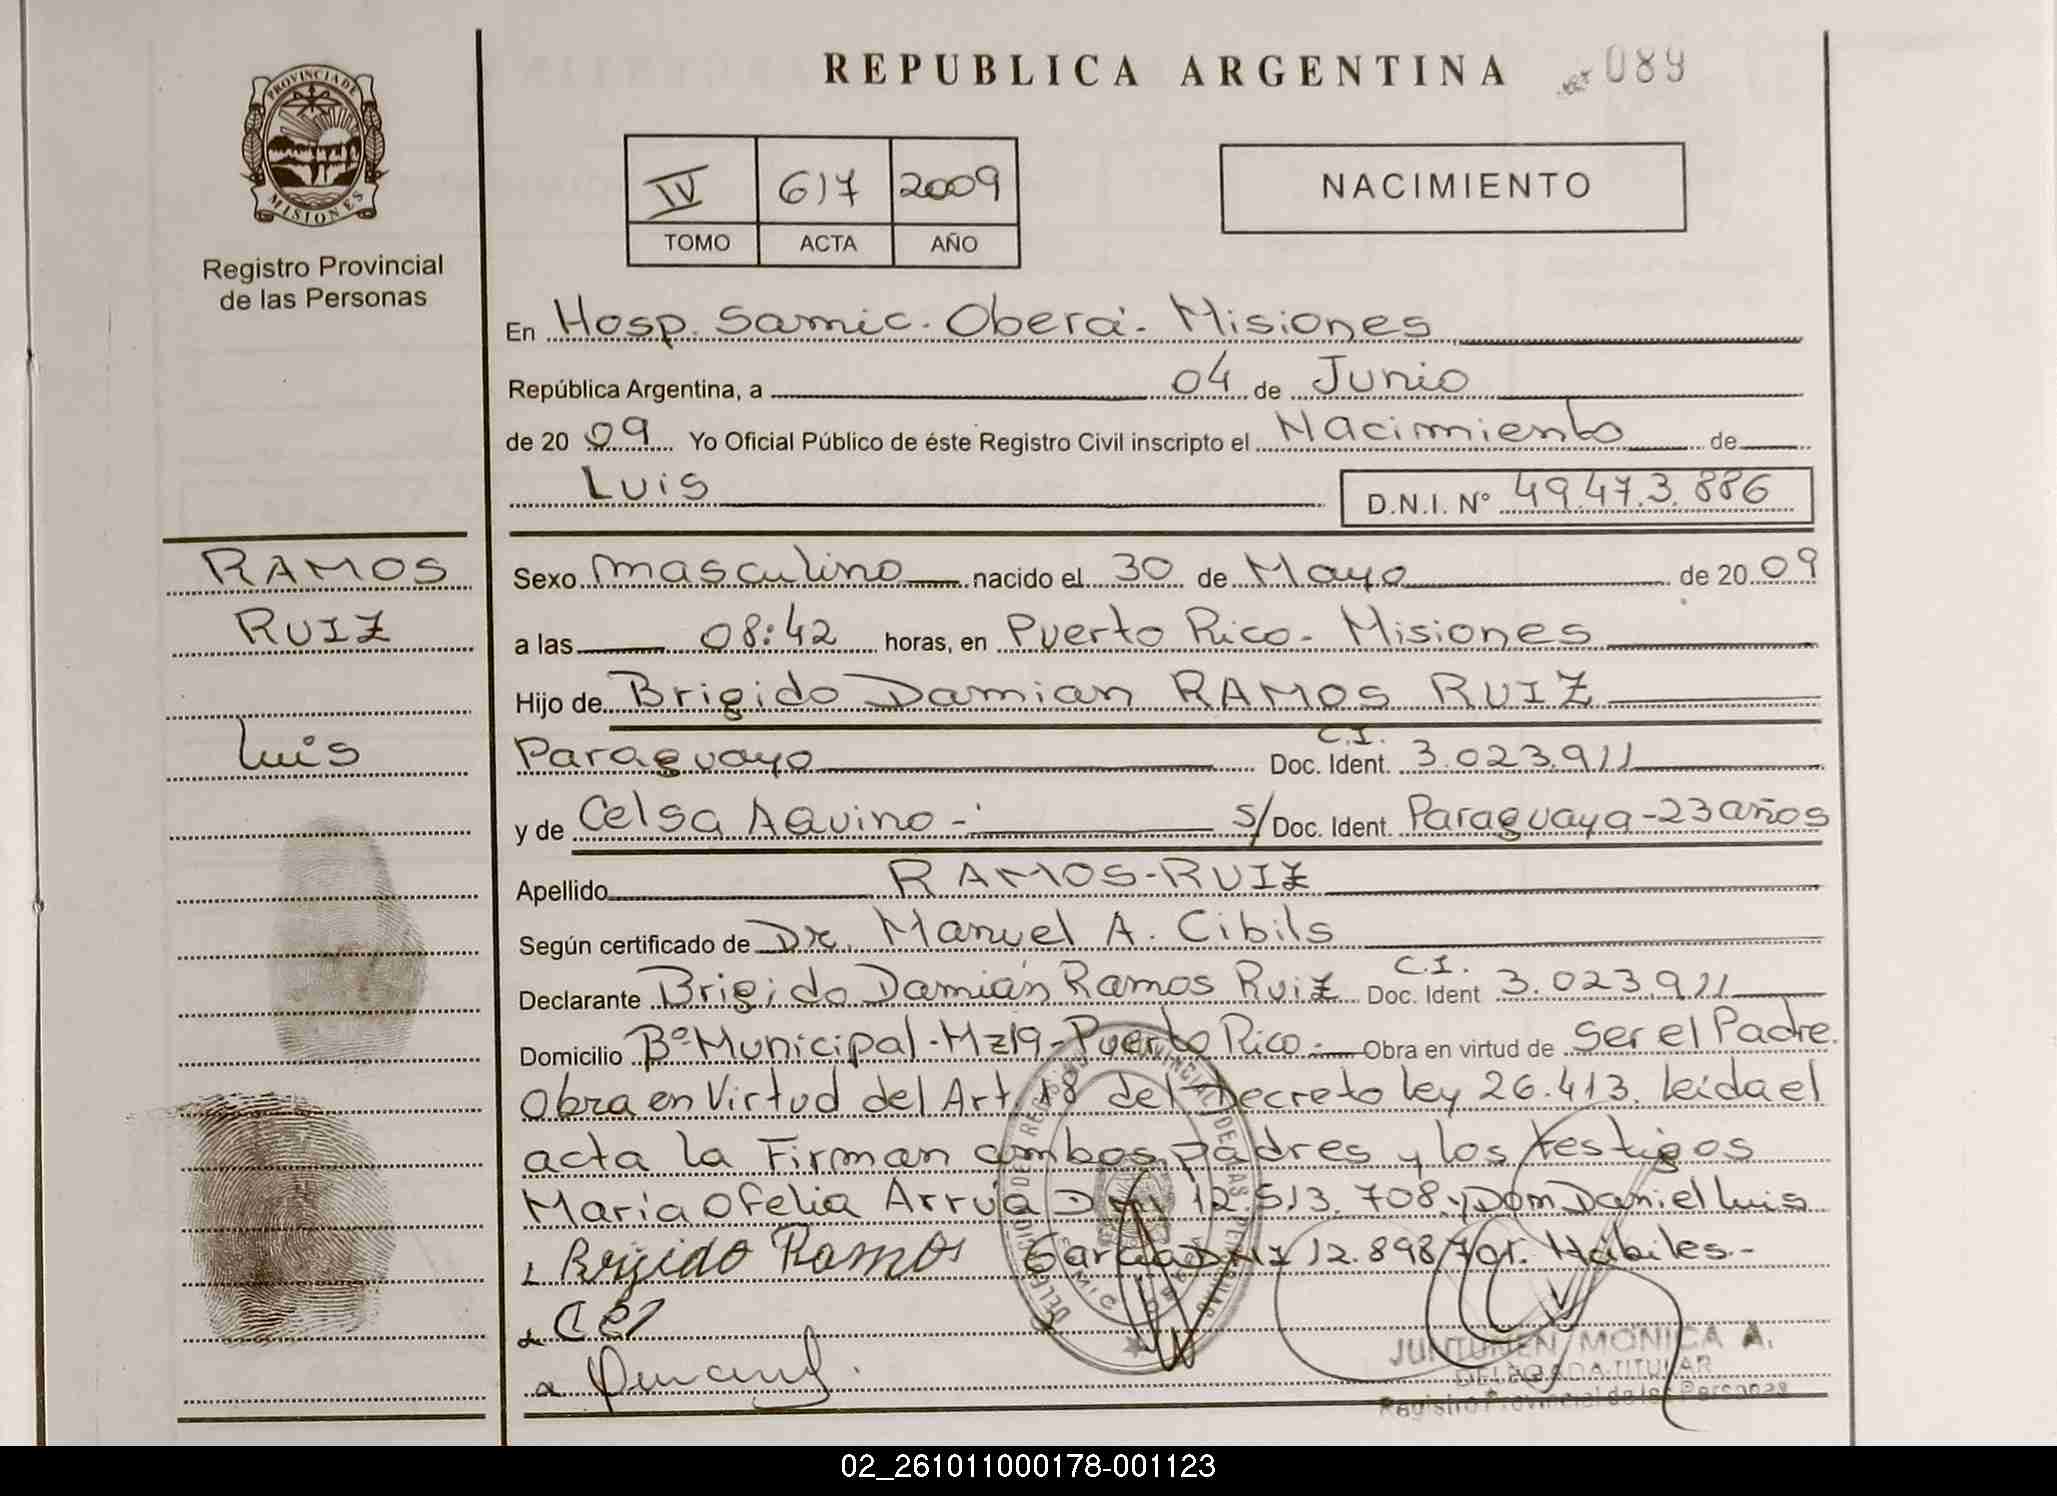 REPUBLICA ARGENTINA
089
PROVINCIA DE
MISIONES
Registro Provincial
de las Personas
IV 617 2009
TOMO ACTA AÑO
NACIMIENTO
En Hosp. Samic. Oberá. Misiones
República Argentina, a 04 de Junio
de 20 09 Yo Oficial Público de éste Registro Civil inscripto el Nacimiento de
Luis D.N.I. Nº 49.473.886
RAMOS
RUIZ
Luis
Sexo masculino nacido el 30 de Mayo de 20 09
a las 08:42 horas, en Puerto Rico - Misiones
Hijo de Brigido Damian RAMOS RUIZ
Paraguayo C.I. Doc. Ident. 3.023.911
y de Celsa Aquino - s/ Doc. Ident. Paraguaya - 23 años
Apellido RAMOS-RUIZ
Según certificado de Dr. Manuel A. Cibils
Declarante Brigido Damián Ramos Ruiz C.I. Doc. Ident 3.023.911
Domicilio Bº Municipal - Mz19 - Puerto Rico - Obra en virtud de ser el Padre.
Obra en Virtud del Art. 18 del Decreto ley 26.413. leida el
acta la Firman ambos padres y los testigos
María Ofelia Arrua DNI 12.513.708 y Dom Daniel Luis
Brigido Ramos
DNI 12.898 Hábiles.-
Cel
JUNTUNEN MONICA A.
DELEGADA TITULAR
Registro Provincial de las Personas
02_261011000178-001123